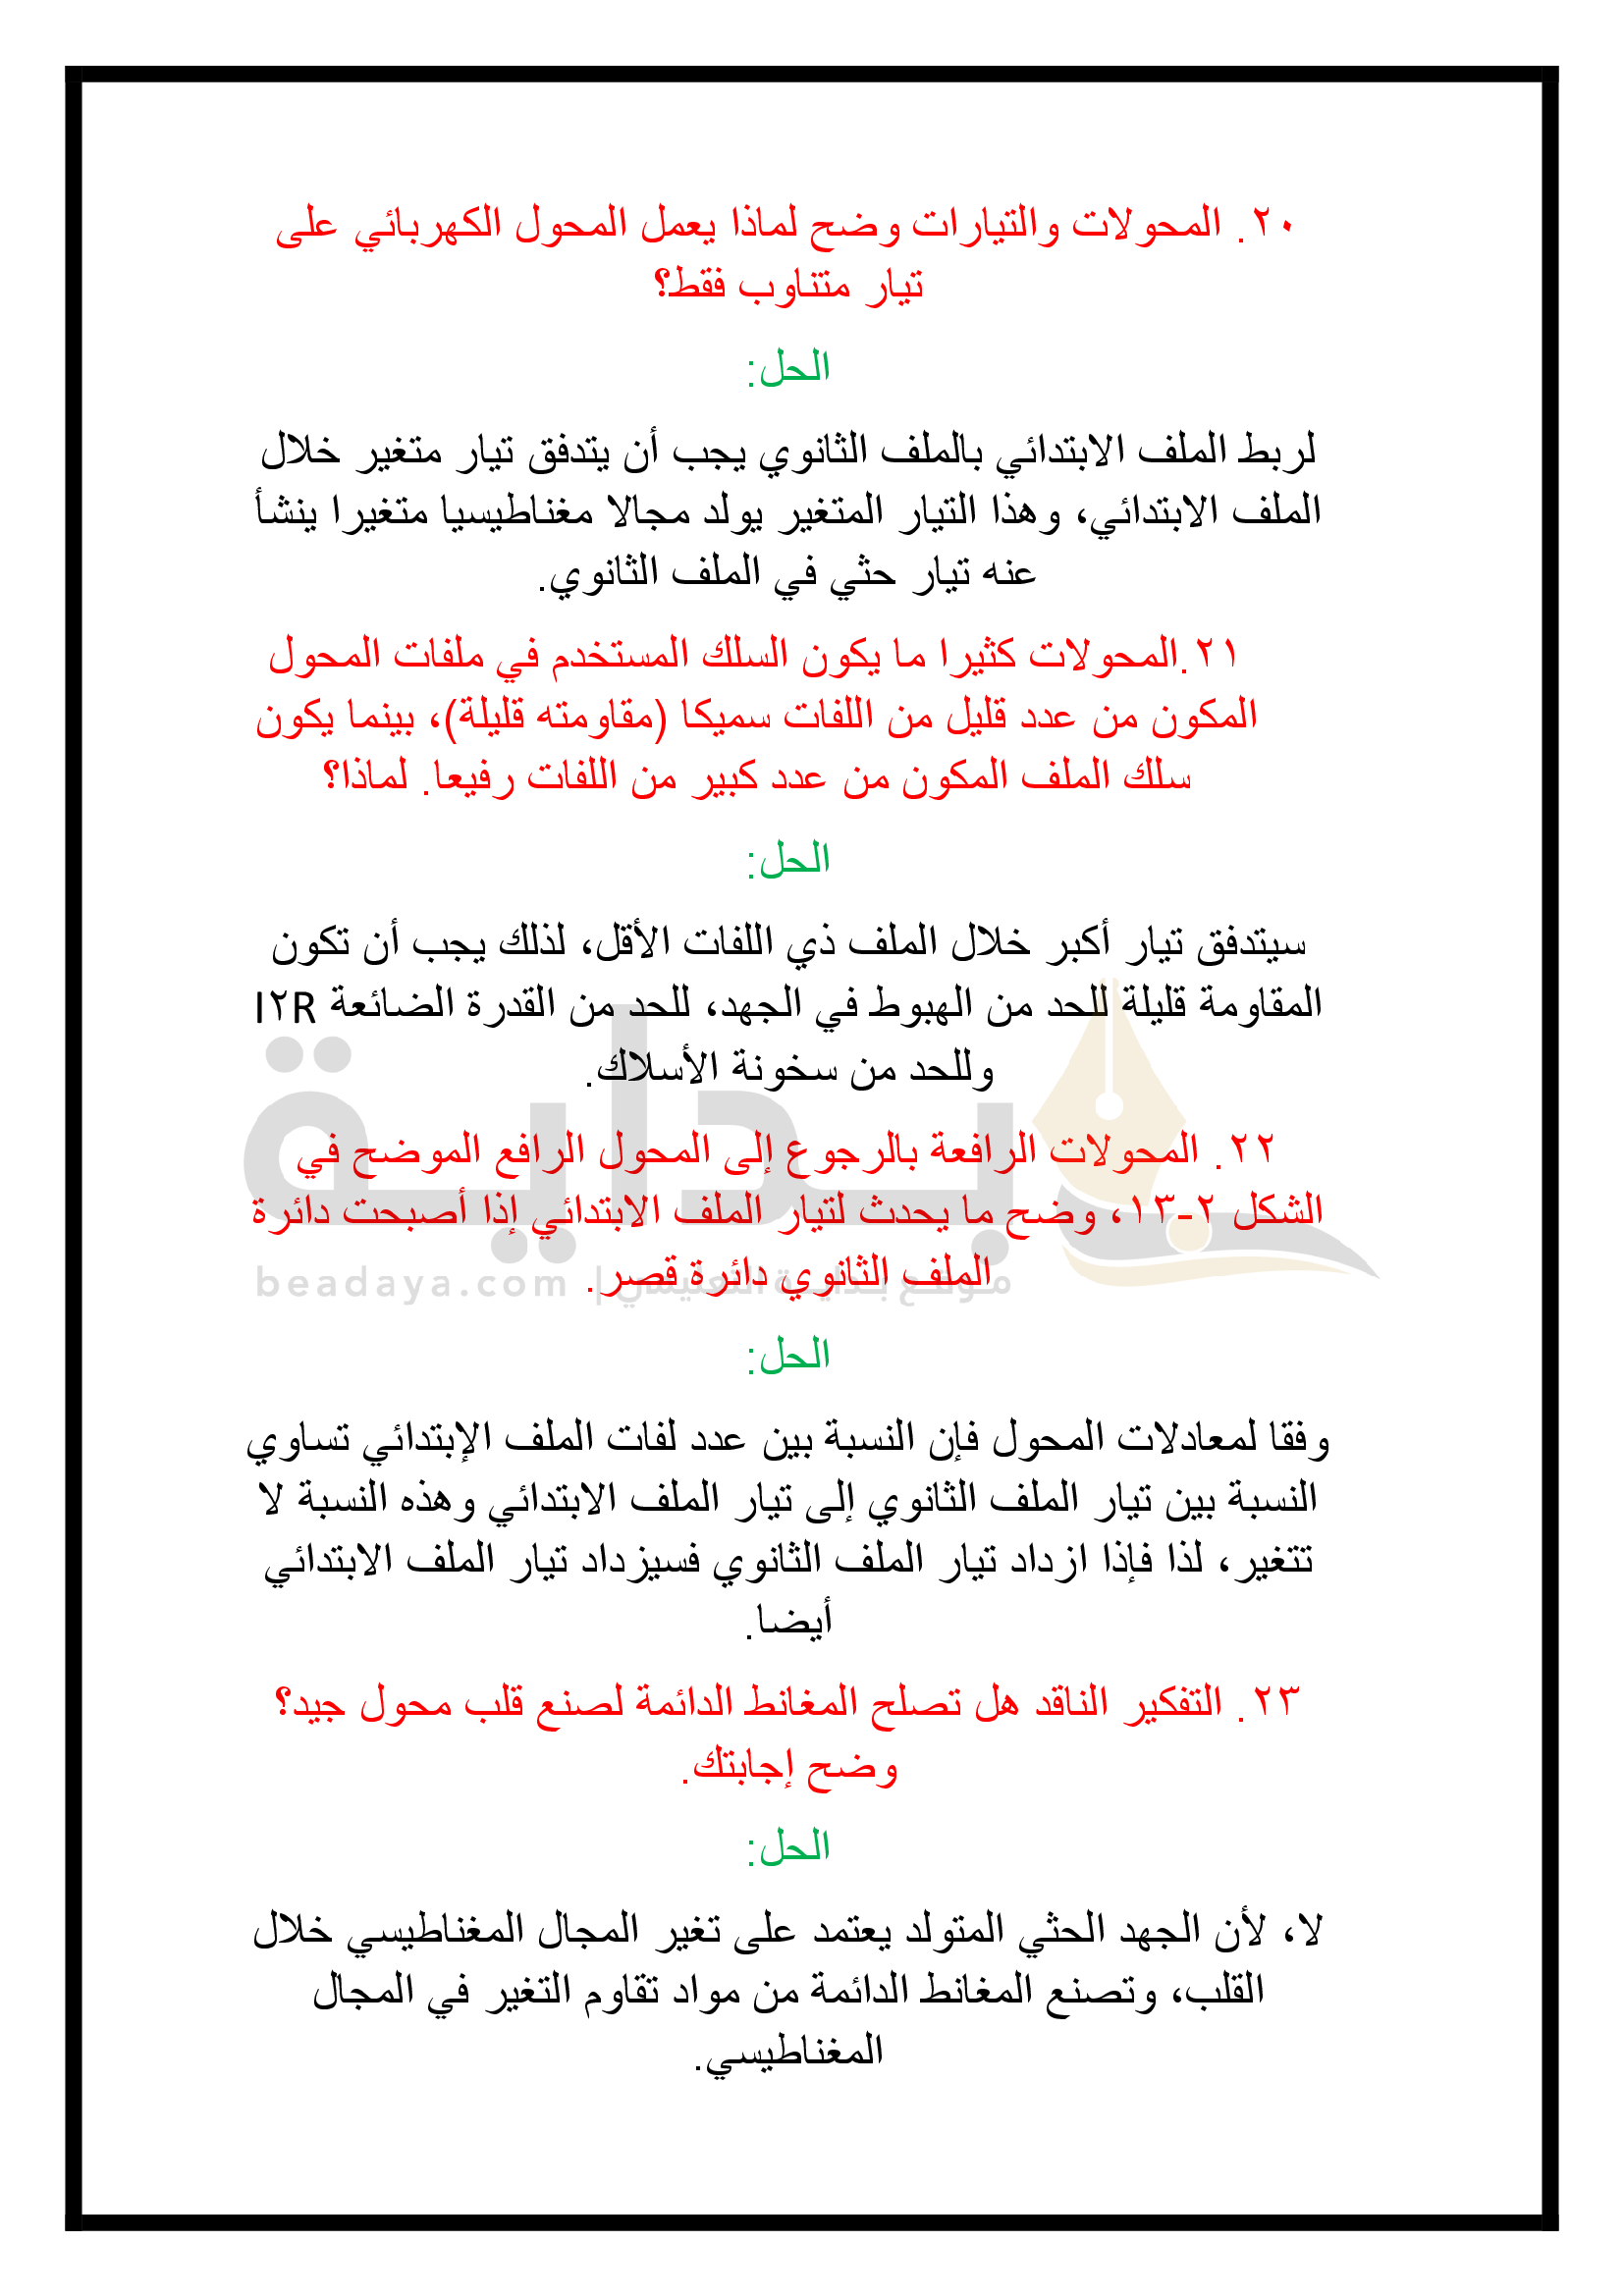 ٢٠. المحولات والتيارات وضح لماذا يعمل المحول الكهربائي على
تيار متناوب فقط؟
الحل:
لربط الملف الابتدائي بالملف الثانوي يجب أن يتدفق تيار متغير خلال
الملف الابتدائي، وهذا التيار المتغير يولد مجالا مغناطيسيا متغيرا ينشأ
عنه تيار حثي في الملف الثانوي.
٢١.المحولات كثيرا ما يكون السلك المستخدم في ملفات المحول
المكون من عدد قليل من اللفات سميكا (مقاومته قليلة)، بينما يكون
سلك الملف المكون من عدد كبير من اللفات رفيعا. لماذا؟
الحل:
سيتدفق تيار أكبر خلال الملف ذي اللفات الأقل، لذلك يجب أن تكون
المقاومة قليلة للحد من الهبوط في الجهد، للحد من القدرة الضائعة I٢R
وللحد من سخونة الأسلاك.
بداية
٢٢. المحولات الرافعة بالرجوع إلى المحول الرافع الموضح في
الشكل ٢-١٣، وضح ما يحدث لتيار الملف الابتدائي إذا أصبحت دائرة
الملف الثانوي دائرة قصر.
موقع بداية التعليمي | beadaya.com
الحل:
وفقا لمعادلات المحول فإن النسبة بين عدد لفات الملف الإبتدائي تساوي
النسبة بين تيار الملف الثانوي إلى تيار الملف الابتدائي وهذه النسبة لا
تتغير، لذا فإذا ازداد تيار الملف الثانوي فسيزداد تيار الملف الابتدائي
أيضا.
٢٣. التفكير الناقد هل تصلح المغانط الدائمة لصنع قلب محول جيد؟
وضح إجابتك.
الحل:
لا، لأن الجهد الحثي المتولد يعتمد على تغير المجال المغناطيسي خلال
القلب، وتصنع المغانط الدائمة من مواد تقاوم التغير في المجال
المغناطيسي.